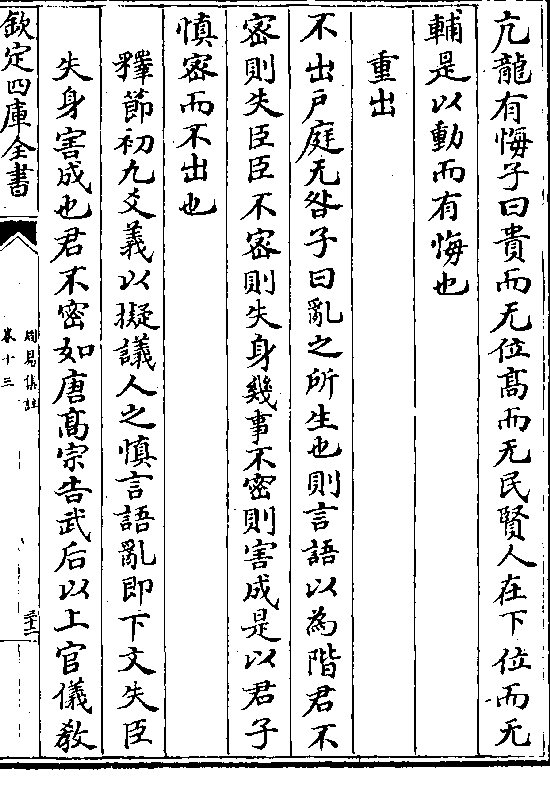 亢龍有悔子曰貴而无位髙而无民賢人在下位而无
輔是以動而有悔也
重出
不出戸庭无咎子曰亂之所生也則言語以為階君不
密則失臣臣不密則失身幾事不密則害成是以君子
慎密而不出也
釋節初九爻義以擬議人之慎言語亂即下文失臣
失身害成也君不密如唐髙宗告武后以上官儀教
欽定四庫全書
周易集註
卷十三